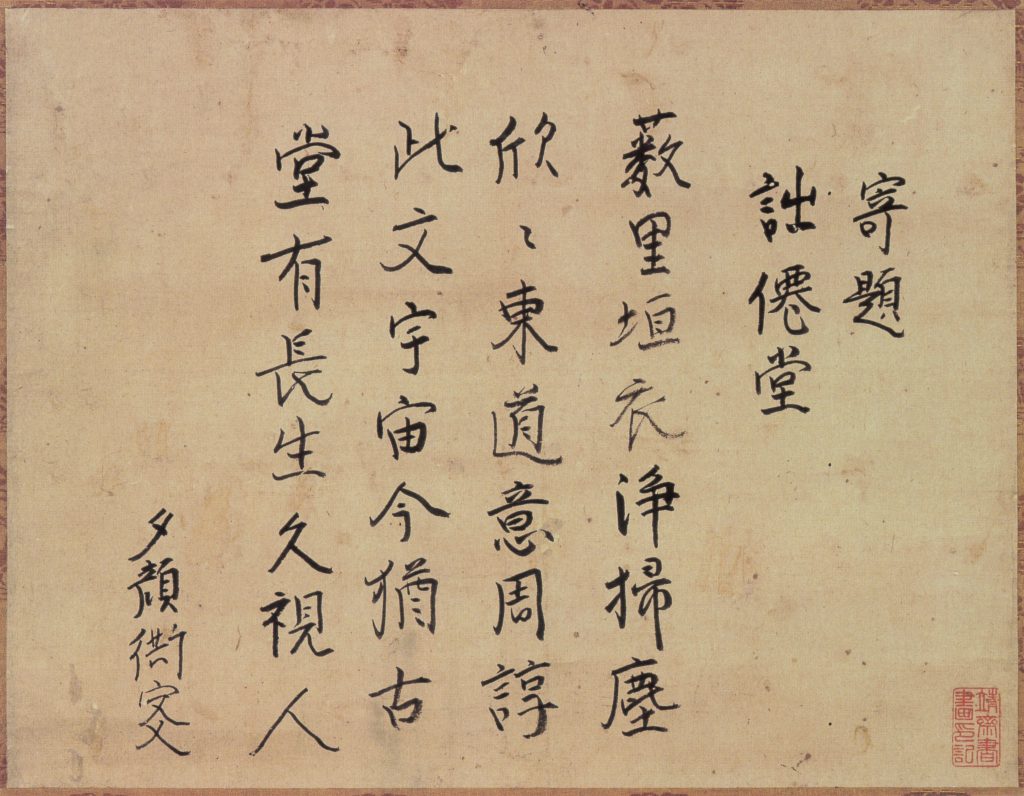 寄題
詘僊堂
藪里垣衣浄掃塵
欣〻東道意周諄
此文宇宙今猶古
堂有長生久視人
夕顔衖叜
靖齋書
畫之記